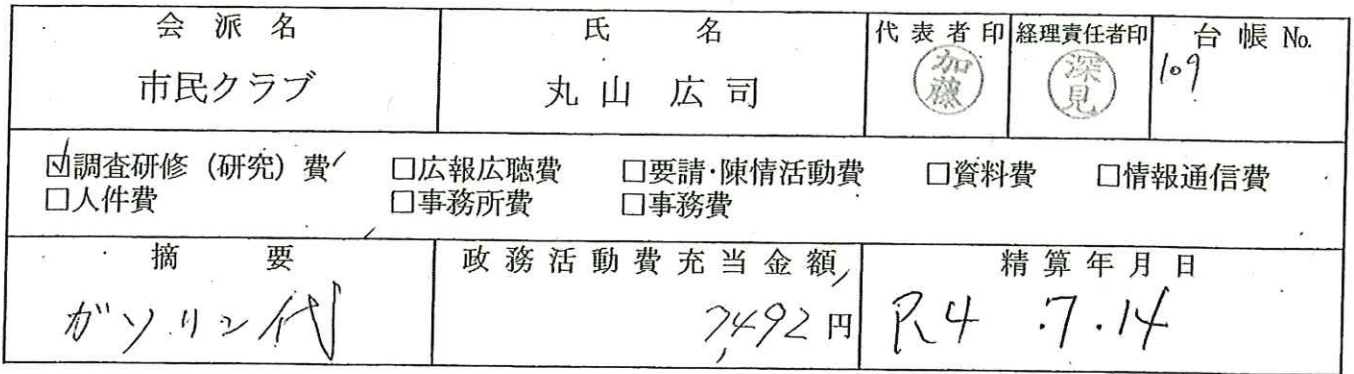 会派名 氏名 代表者印 経理責任者印 台帳 No.
市民クラブ 丸山広司 加藤 深見 109
☑調査研修（研究）費 □広報広聴費 □要請・陳情活動費 □資料費 □情報通信費
□人件費 □事務所費 □事務費
摘要 政務活動費充当金額 精算年月日
ガソリン代 7,492円 R4.7.14